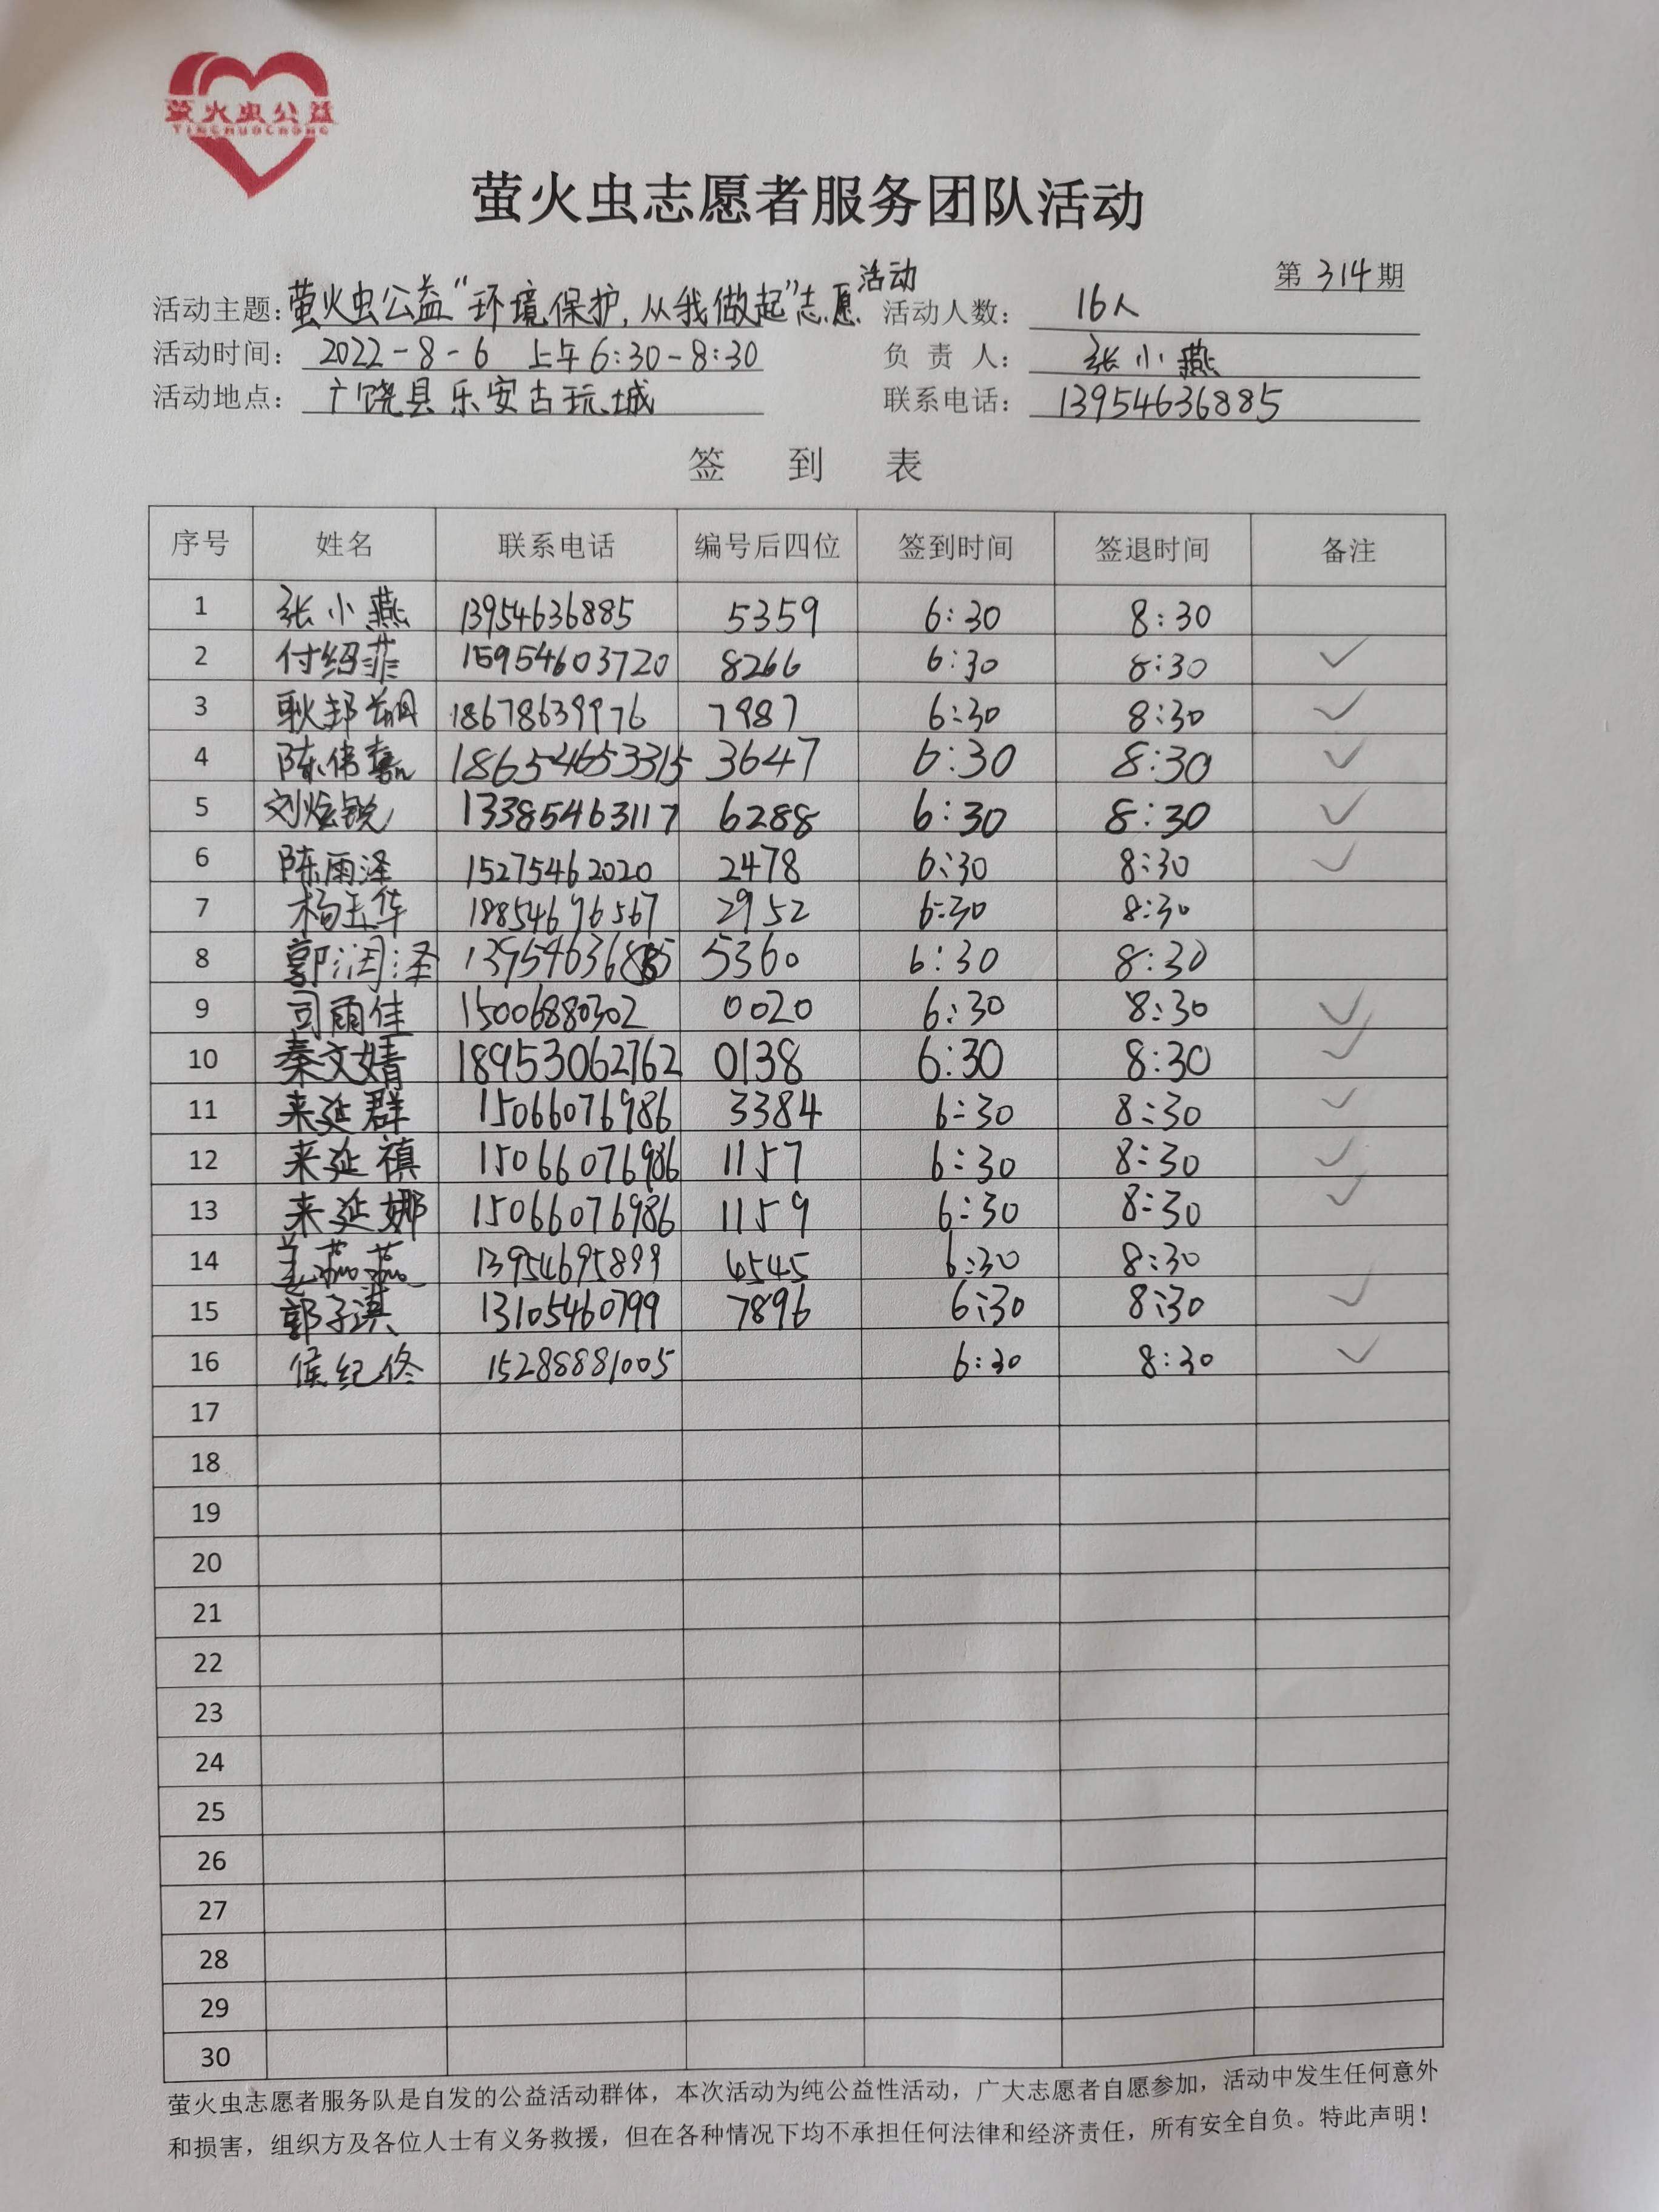 萤火虫公益
YINGHUOCHONG
萤火虫志愿者服务团队活动
第 314 期
活动主题：萤火虫公益“环境保护，从我做起”志愿活动 活动人数： 16人
活动时间： 2022-8-6 上午 6:30-8:30 负 责 人： 张小燕
活动地点： 广饶县乐安古玩城 联系电话： 13954636885
签 到 表
序号 姓名 联系电话 编号后四位 签到时间 签退时间 备注
1 张小燕 13954636885 5359 6:30 8:30
2 付绍菲 15954603720 8266 6:30 8:30 ✓
3 耿邦 18678639976 7987 6:30 8:30 ✓
4 陈伟嘉 18654653315 3647 6:30 8:30 ✓
5 刘炫锐 13385463117 6288 6:30 8:30 ✓
6 陈雨泽 15275462020 2478 6:30 8:30 ✓
7 杨玉华 18854696567 2952 6:30 8:30
8 郭润泽 13954636885 5360 6:30 8:30
9 司雨佳 15006880302 0020 6:30 8:30 ✓
10 秦文婧 18953062762 0138 6:30 8:30 ✓
11 来延群 15066076986 3384 6:30 8:30 ✓
12 来延禛 15066076986 1157 6:30 8:30 ✓
13 来延娜 15066076986 1159 6:30 8:30 ✓
14 13954695899 6545 6:30 8:30
15 郭子淇 13105460799 7896 6:30 8:30 ✓
16 侯纪佟 15288881005 6:30 8:30 ✓
17
18
19
20
21
22
23
24
25
26
27
28
29
30
萤火虫志愿者服务队是自发的公益活动群体，本次活动为纯公益性活动，广大志愿者自愿参加，活动中发生任何意外
和损害，组织方及各位人士有义务救援，但在各种情况下均不承担任何法律和经济责任，所有安全自负。特此声明！